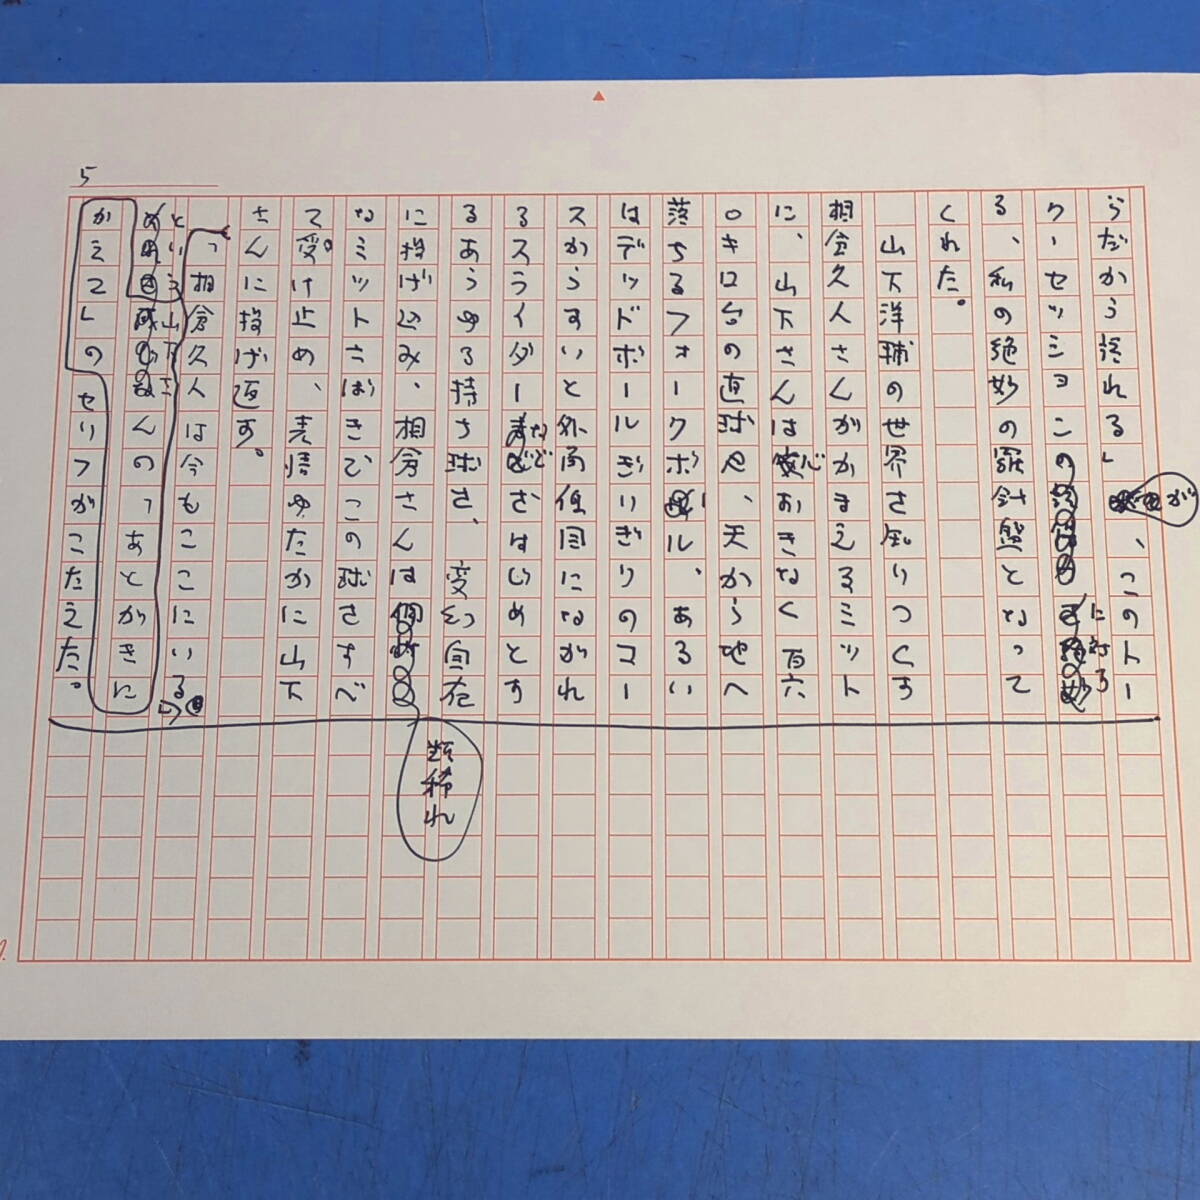 5
らだから語れる」が、このトー
クーセッションに対す
る、私の絶妙の羅針盤となって
くれた。
山下洋輔の世界を知りつくす
相倉久人さんがかまえるミット
に、山下さんは安心おきなく百六
〇キロ台の直球や、天から地へ
落ちるフォークボール、あるい
はデッドボールぎりぎりのコー
スからすいと外角低目にながれ
るスライダーなどをはじめとす
るあらゆる持ち球を、変幻自在
に投げ込み、相倉さんは類稀れ
なミットさばきでこの球をすべ
て受け止め、表情ゆたかに山下
さんに投げ返す。
「相倉久人は今もここにいる」
という山下さ
んの「あとがきに
かえて」のセリフがこたえた。